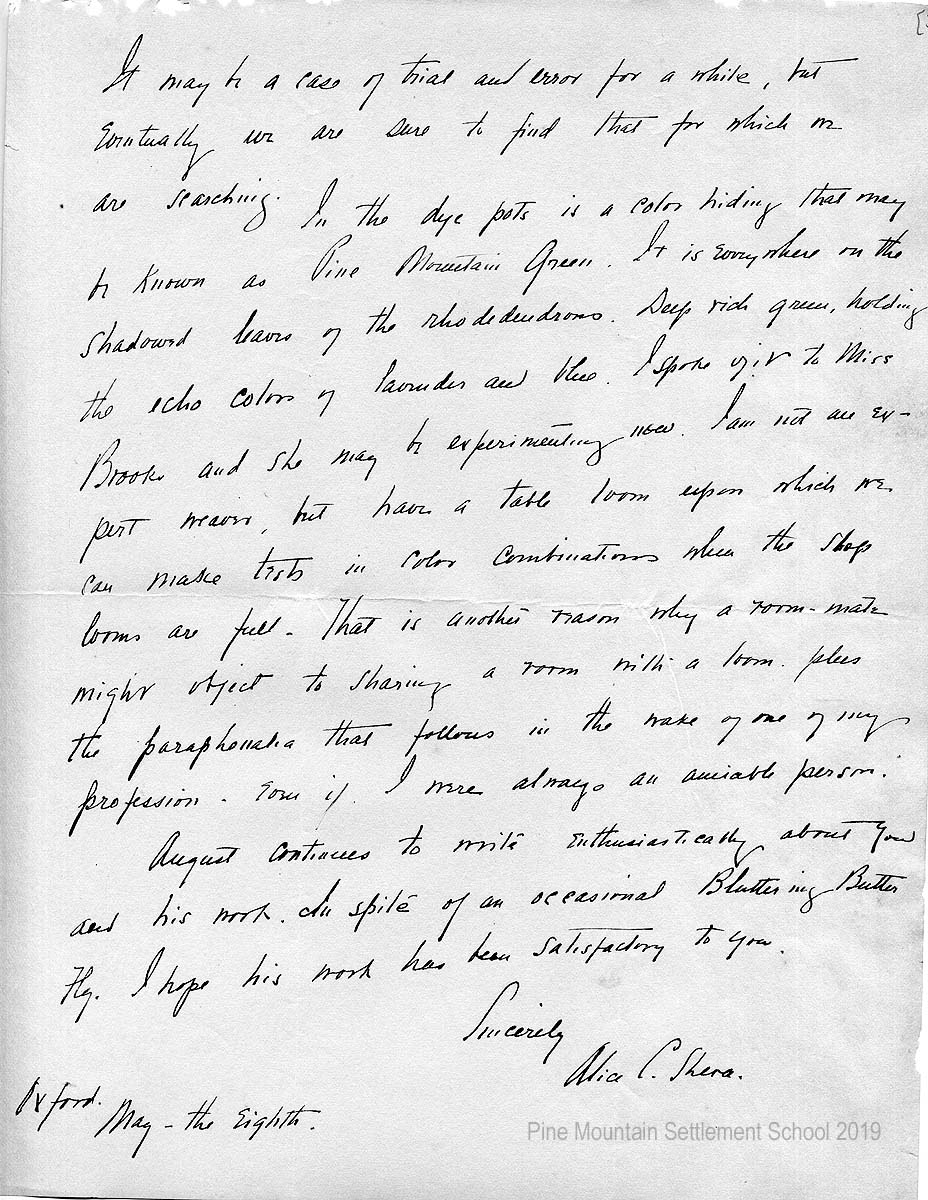 It may be a case of trial and error for a while, but
Eventually we are sure to find that for which we
are searching. In the dye pots is a color hiding that may
be Known as Pine Mountain Green. It is Everywhere on the
shadowed leaves of the rhododendrons. Deep rich green, holding
the echo colors of lavender and blue. I spoke of it to Miss
Brooks and she may be experimenting now. I am not an ex-
pert weaver, but have a table loom upon which we
can make tests in color combinations when the shop
looms are full. That is another reason why a room-mate
might object to sharing a room with a loom. plus
the paraphenalia that follows in the wake of one of my
profession. Even if I were always an amiable person.
August continues to write Enthusiastically about you
and his work. In spite of an occasional Bluttering Butter
Fly. I hope his work has been satisfactory to you.
Sincerely
Alice C. Shera.
Oxford.
May - the Eighth.
Pine Mountain Settlement School 2019